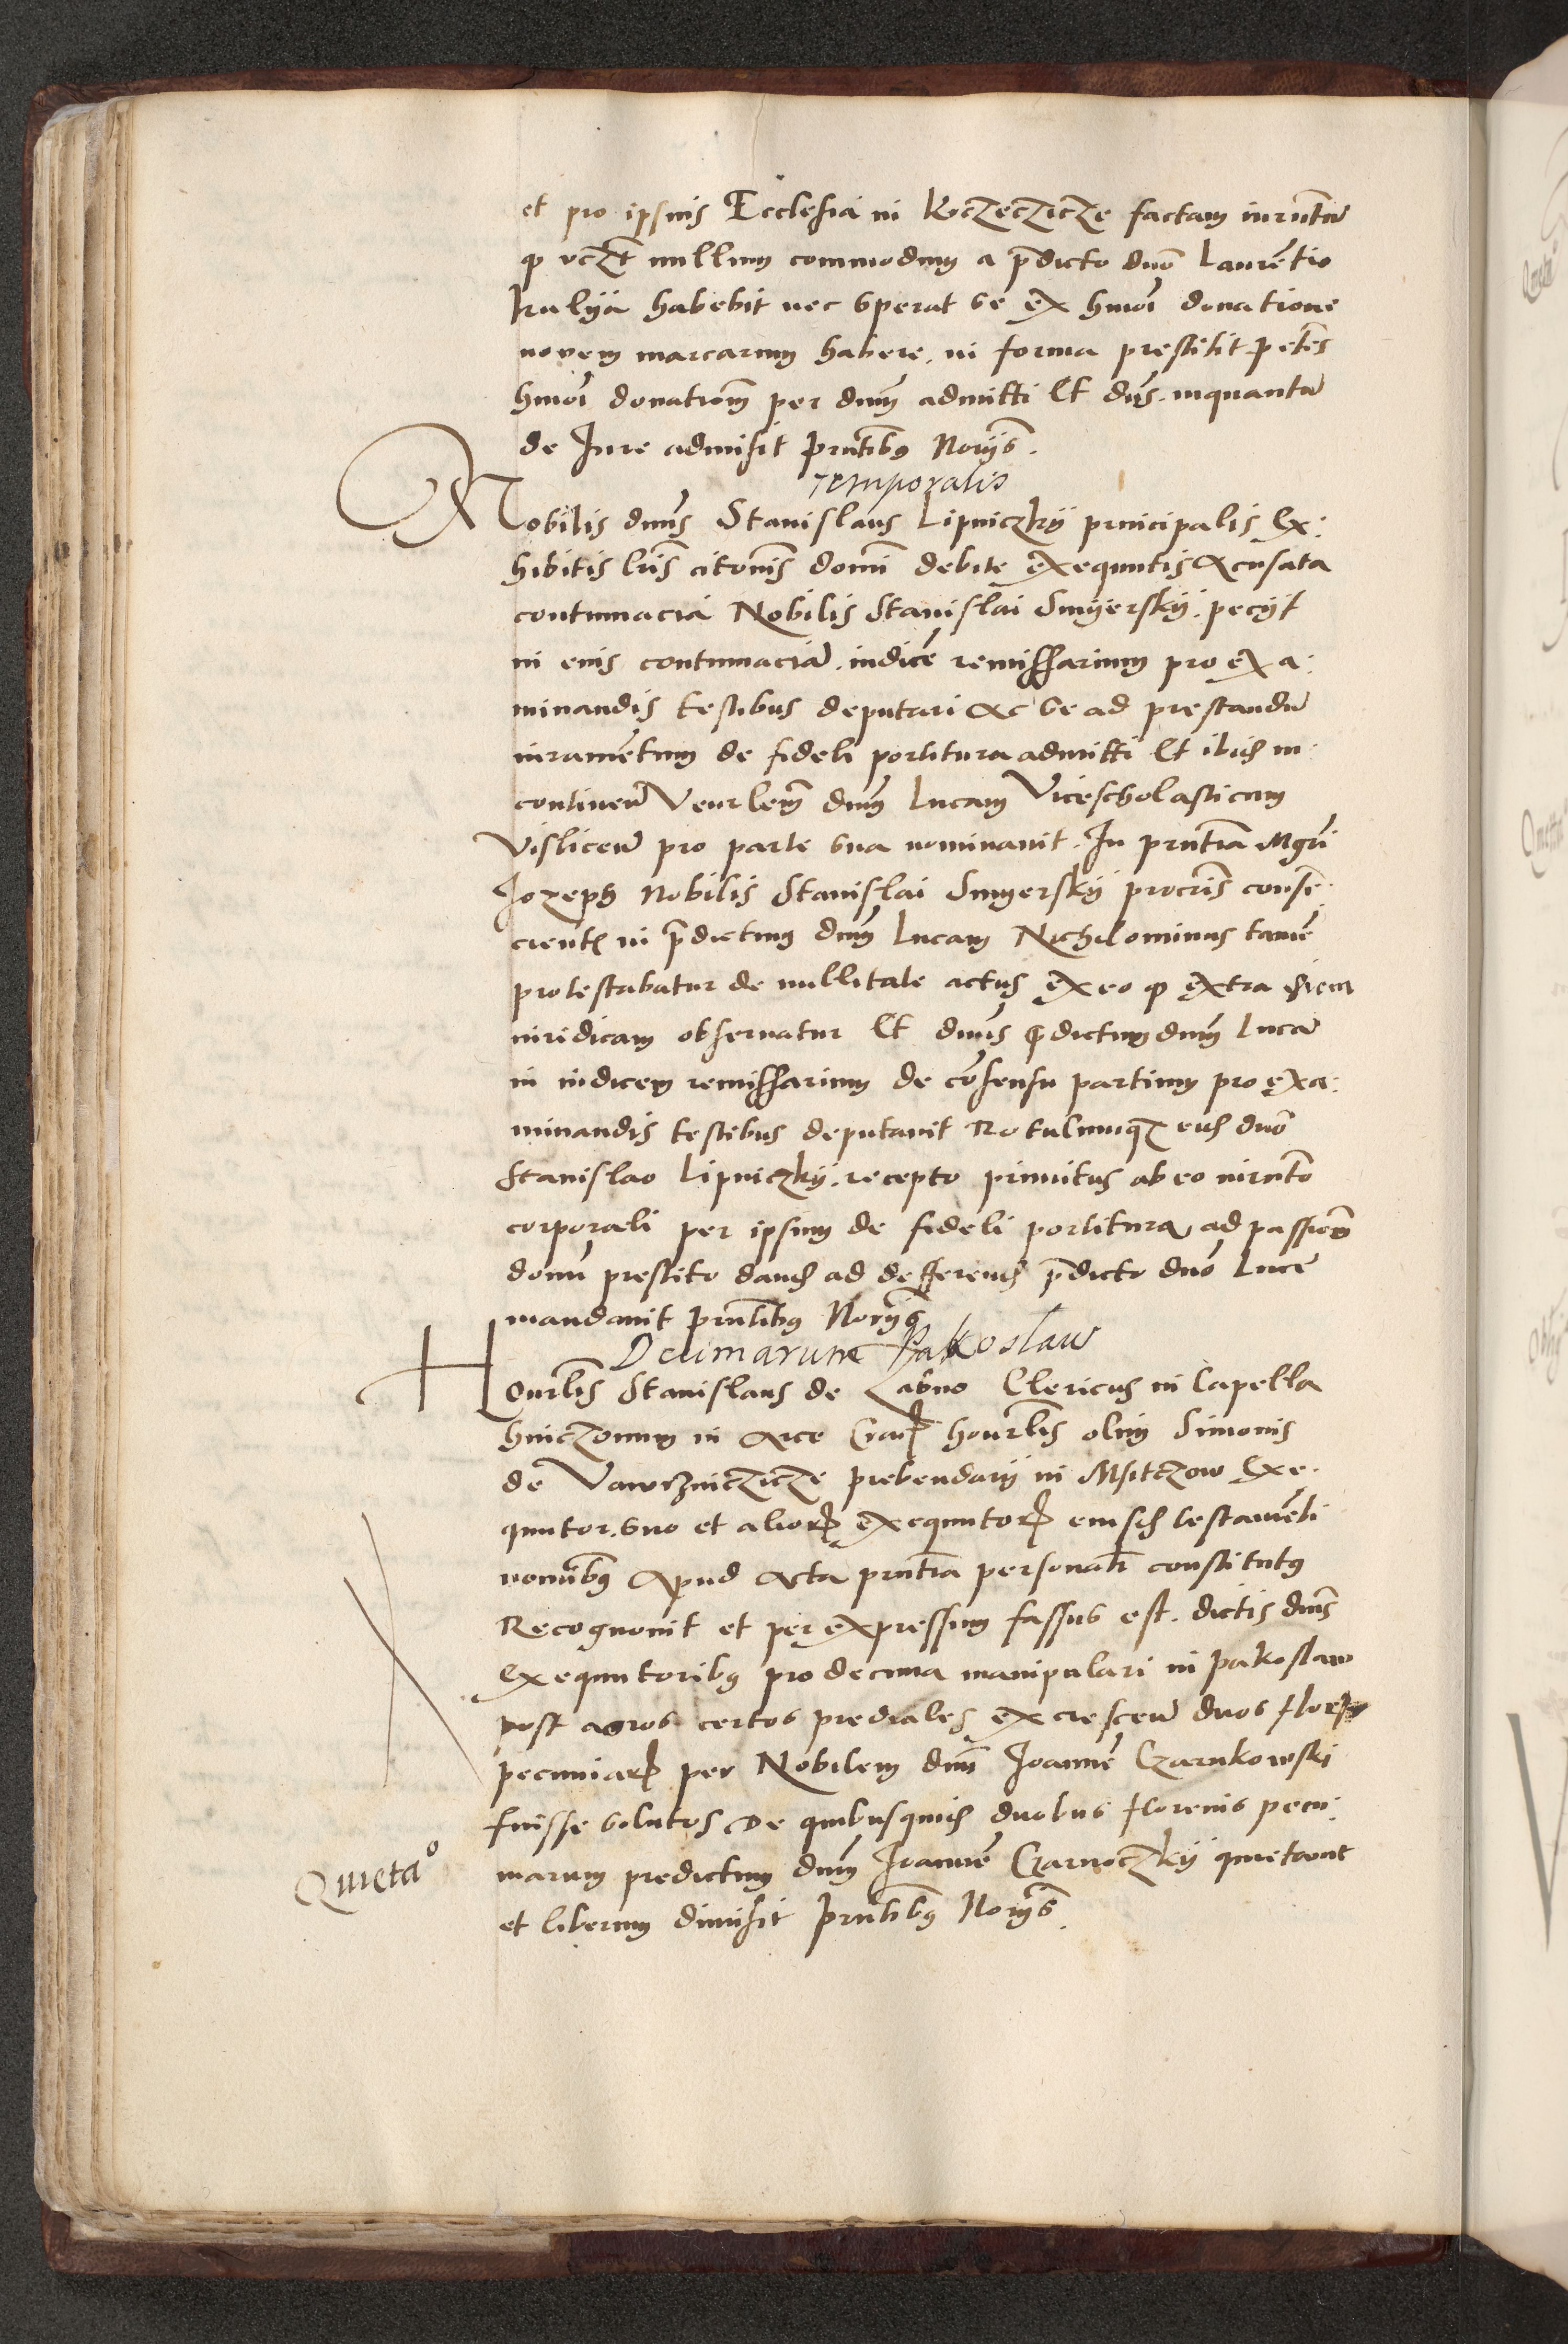 et pro ipsius Ecclesia in Koczeczicze factam iurūtū
ꝙ vcz̄t nullum commodum a p̄dicto dnō Laurētio
kulÿa habebit nec sperat se ex hmōi donatione
novem marcarum habere. in forma prestitit petēs
hmōi donationē per dnm̄ admitti Et dn̄s. inquantū
de Jure admisit pn̄tibus Norÿs.
Temporalis
Nobilis dnūs Stanislaus Lipniczkÿ principalis Ex:
hibitis lr̄is citōnis domī debite exequutis Accusata
contumacia Nobilis Stanislai Smÿerskÿ. pecÿt
in eius contumaciā. iudicē remissarium pro exa:
minandis testibus deputari Ac se ad prestandū
iuramētum de fideli portitura admitti Et ibid̄ in:
continen̄ Venrlem̄ dnm̄ Lucam Vicescholasticum
Vislicen̄ pro parte sua nominavit. In pn̄tia Mgrī
Jozeph Nobilis Stanislai Smyerskÿ procr̄is consē:
cient̄ in p̄dictum dnm̄ Lucam Nichilominus tamē
protestabatur de nullitate actus ex eo ꝙ extra viem
iuridicam observatur Et dnūs p̄dictum dnm̄ Lucā
in iudicem remissarium de cōsensu partium pro exa:
minandis testibus deputavit Rotulumqz eid̄ dnō
Stanislao Lipniczkÿ. recepto primitus ab eo iurnto
corporali per ipsum de fideli portitura ad passionē
domī prestito dand̄ ad defferend̄ p̄dicto dnō Luce
mandavit pn̄tibus Norÿs
Decimarum Pakoslaw
Honrlis Stanislaus de Labno Clericus in Capella
hinczonum in Arce Crac̄ honrlis olim Simonis
de Vawrznicziczе prebendarÿ in Msticzow Exe:
quutor. suo et alioꝝ exequutoꝝ eiusd̄ testamēti
nominibꝰ Apud Acta pn̄tia personalr̄ constitutꝰ
Recognovit et per expressum fassus est. dictis dnīs
Exequutoribꝰ pro decima manipulari in Pakoslaw
post agros certos prediales excrescen̄ duos flor̄
pecuniaꝝ per Nobilem dnm̄ Joannē Czarnkowski
fuisse solutos De quibusquid̄ duobus florenis pecu:
niarum predictum dnm̄ Joannē Czarnoczkÿ quietavit
Quietaᵒ
et liberum dimisit pn̄tibus Norÿs.